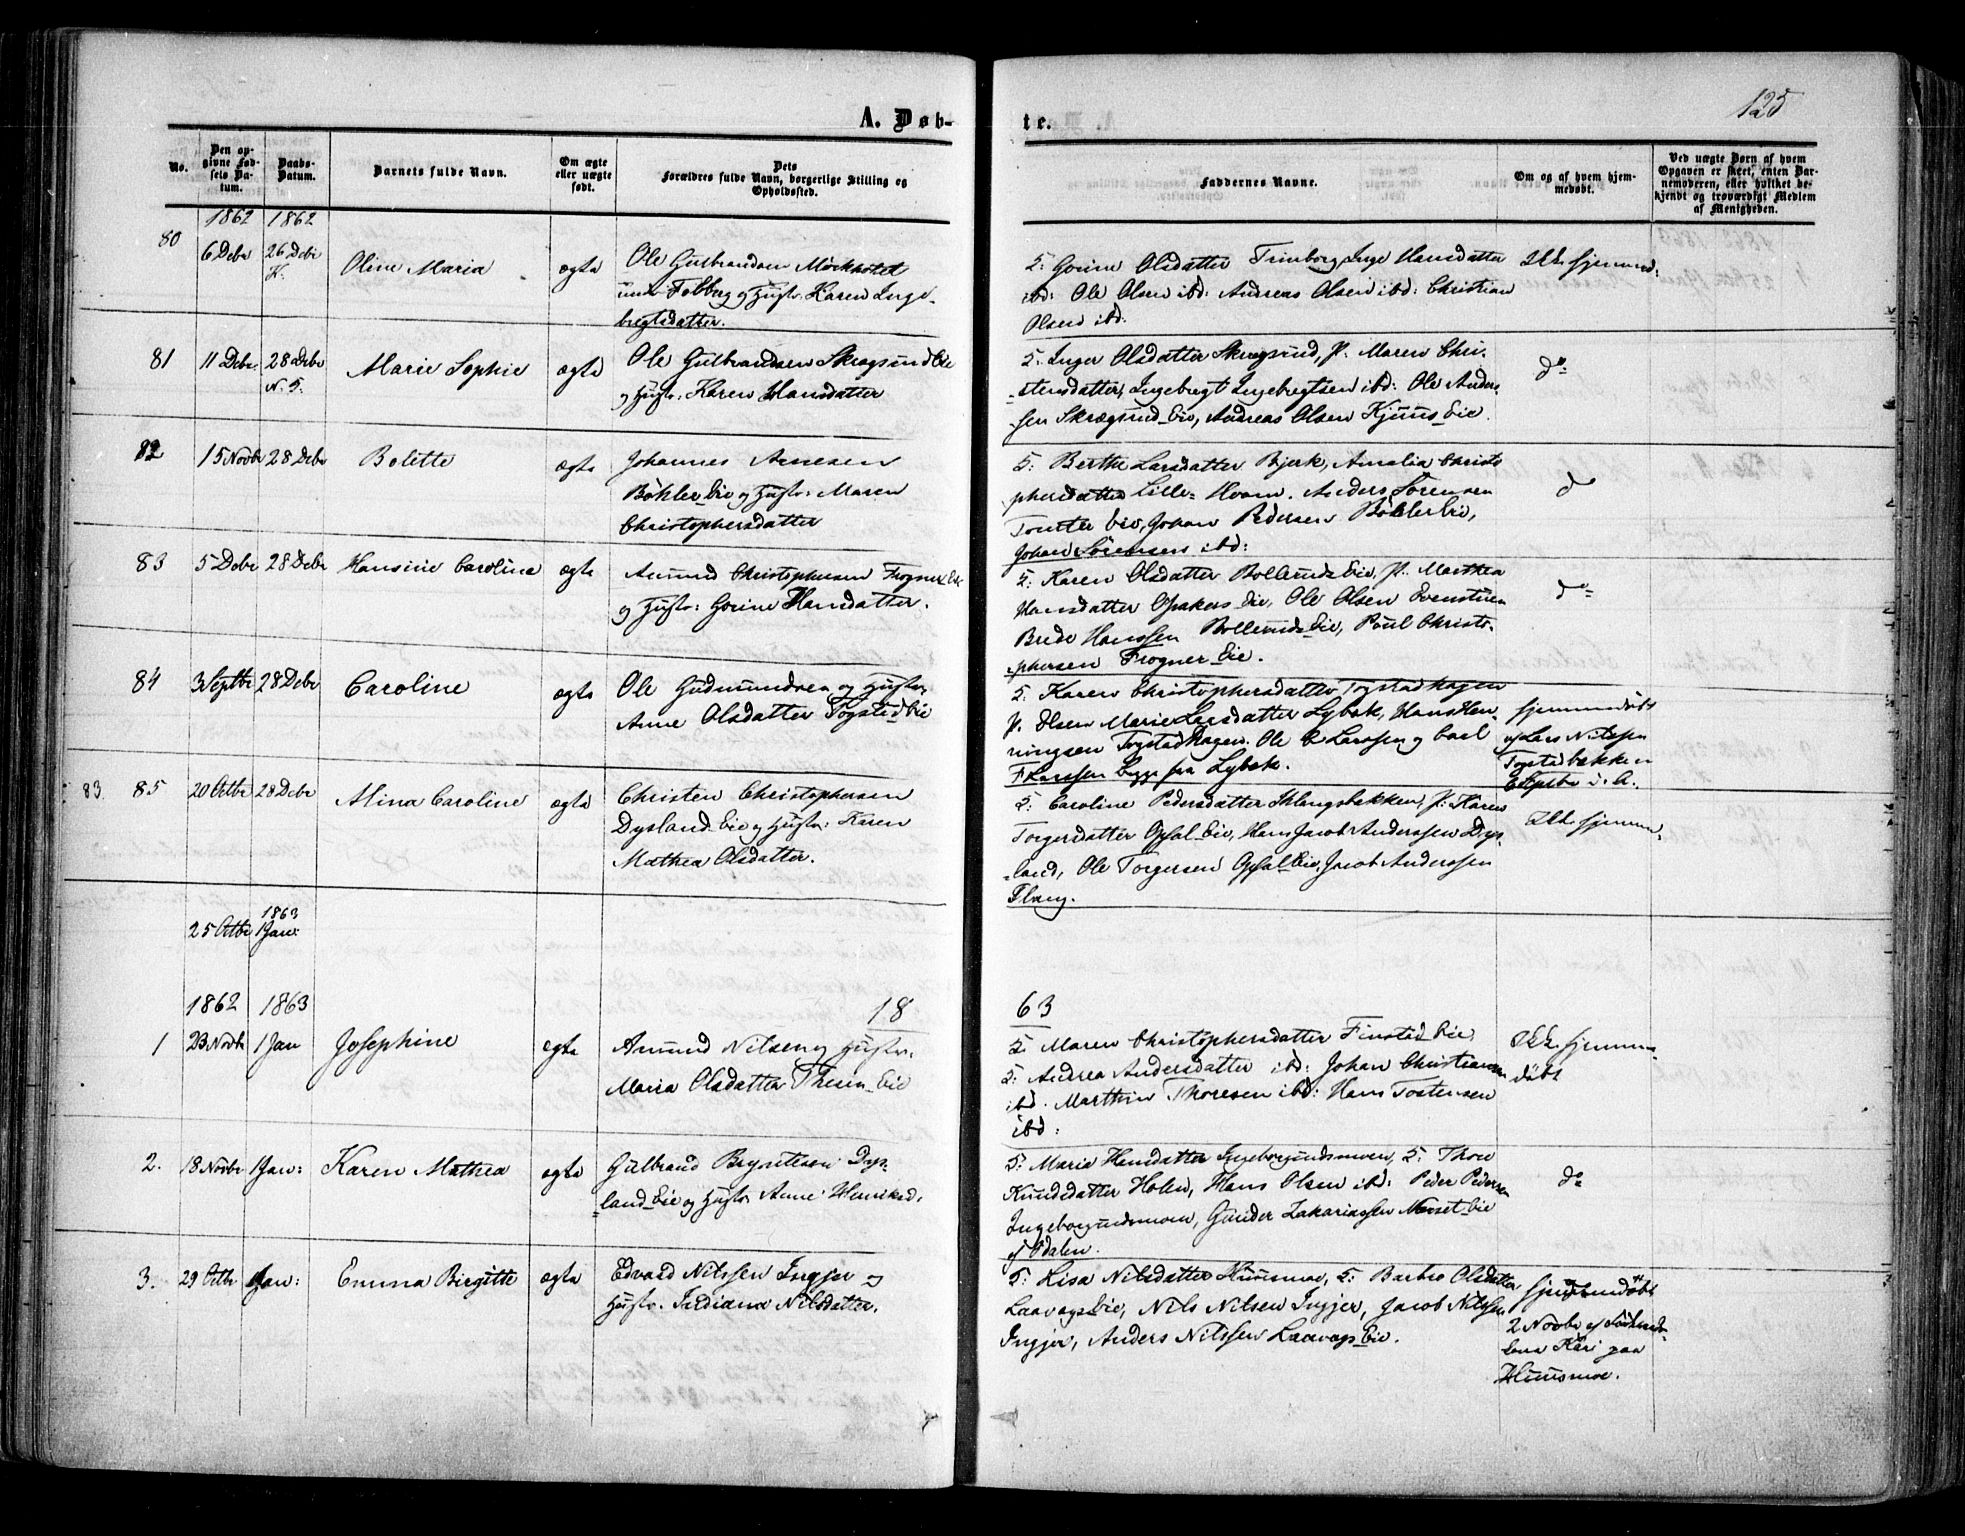 125
A. Døb-
te.
No.
Den op-
givne Fød-
sels Da-
tum.
Daabs-
Datum.
Barnets fulde Navn.
Om ægte
eller uægte
født.
Dets
Forældres fulde Navn, borgerlige Stilling og
Opholdssted.
Faddernes Navne.
Om og af hvem hjem-
medøbt.
Ved uægte Børn af hvem
Opgaven er skeet, enten Bar-
nemoderen, eller hvilket be-
kjendt og troværdigt Medlem
af Menigheden.
1862 1862
80 6 Debr 26 Debr Oline Maria ægte
Ole Gulbrandsen Mörkhölet
under Fobberg og Hustr: Karen Inge-
bregtsdatter.
5: Gorine Olsdatter Trinborg, Inge Hansdatter
ibd: Ole Olsen ibd: Andreas Olsen ibd: Christian
Olsen ibd.
Ikke hjemmed:
81 11 Debr. 28 Debr N. 5. Marie Sophie ægte
Ole Gulbrandsen Skrægsrud Eie
og Hustr: Karen Hansdatter
5: Inger Olsdatter Skrægsrud, P. Maren Chri-
stensdatter, Ingebregt Ingebregtsen ibd: Ole Ander-
sen Skrægsrud Eie, Andreas Olsen Kjuus Eie.
do
82 15 Novbr 28 Debr Bolette ægte
Johannes Arnesen
Böhler Eie og Hustr: Maren
Christophersdatter
5: Berthe Larsdatter Bjerk, Amalia Christo
phersdatter Lille-Hvam. Anders Sörensen
Tomter Eie, Johan Pedersen Böhler Eie,
Johan Sörensen ibd:
do
83 5 Debr 28 Debr Hansine Carolina ægte
Amund Christophersen Frogner Eie
og Hustr: Gorine Hansdatter.
5: Karen Olsdatter Bollerud Eie, P: Marthea
Hansdatter Opaker Eie, Ole Olsen Evenstuen
Brede Hanssen Bollerud Eie, Poul Christo-
phersen Frogner Eie.
do
84 3 Septbr 28 Debr Caroline ægte
Ole Gudmundsen og Hustr:
Anne Olsdatter Togsted Eie
5: Karen Christophersdatter Togstadhagen
P. Olsen Marie Larsdatter Lybæk, Hans Hen-
ningsen Togstadhagen. Ole Larssen og Carl
F Larssen begge fra Lybæk.
hjemmedöbt
af Lars Nilssen
Togstedbakken
6 Septbr d. A.
83. 85 20 Octbr 28 Debr Alina Caroline ægte
Christen Christophersen
Dysland Eie og Hustr: Karen
Mathea Olsdatter.
5: Caroline Pedersdatter Hlangsbakken, P: Karen
Torgersdatter Opsal Eie, Hans Jacob Anderssen Dys-
land, Ole Torgersen Opsal Eie, Jacob Anderssen
Flang.
Ikke hjemm:
25 Octbr 1863 1 Jan:
1862 1863
1863
1 23 Novbr 1 Jan Josephine ægte
Amund Nilsen og Hustr:
Maria Olsdatter Therum Eie
5. Maren Christophersdatter Finstad Eie,
5: Andrea Andersdatter ibd: Johan Christiansen
ibd. Marthin Thoresen ibd: Hans Tostensen
ibd:
Ikke hjemme-
döbt
2. 18 Novbr 1 Jan: Karen Mathea ægte
Gulbrand Bryntesen Dys-
land Eie og Hustr Anne Henriksd.
5: Maria Hansdatter Ingeborgrudsmoen, 5: Thore
Knudsdatter Holen, Hans Olsen ibd: Peder Pedersen
Ingeborgrudsmoen, Gunder Zakariassen Næset Eie
af Odalen.
do
3. 29 Octbr 1 Jan: Emma Birgitte ægte
Edvard Nilssen Ingjer og
Hustr. Indiana Nilsdatter.
5: Lisa Nilsdatter Huusmoe, 5: Barbro Olsdatter
Laavags Eie, Nils Nilsen Ingjer, Jacob Nilssen
Ingjer, Anders Nilssen Laavags Eie.
hjemmedöbt
2 Novbr af
Kari paa
Huusmoe.